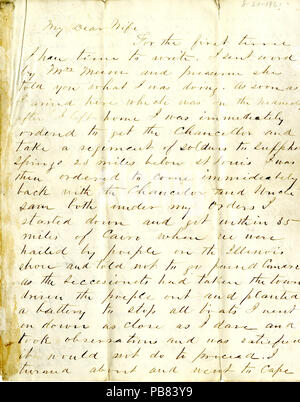 8-21-1861
My Dear Wife
For the first time
I have time to write. I sent word
by Mrs Mason and presume she
told you what I was doing. As soon as
I arrived here which was on the
after I left home I was immediately
ordered to get the Chancellor and
take a regiment of soldiers to Sulpher
Springs 23 miles below St Louis I was
then ordered to come immediately
back with the Chancelor and Uncle
Sam both under my orders I
started down and got within 35
miles of Cairo when we were
hailed by people on the Illinois
shore and told not to go
as the seccesionests had taken the town
driven the people out and planted
a battery to stop all boats I went
on down as close as I dare and
took observations and was satisfied
it would not do to procead. I
turned about and went to Cape
alamy
Image ID: PB83Y9
www.alamy.com